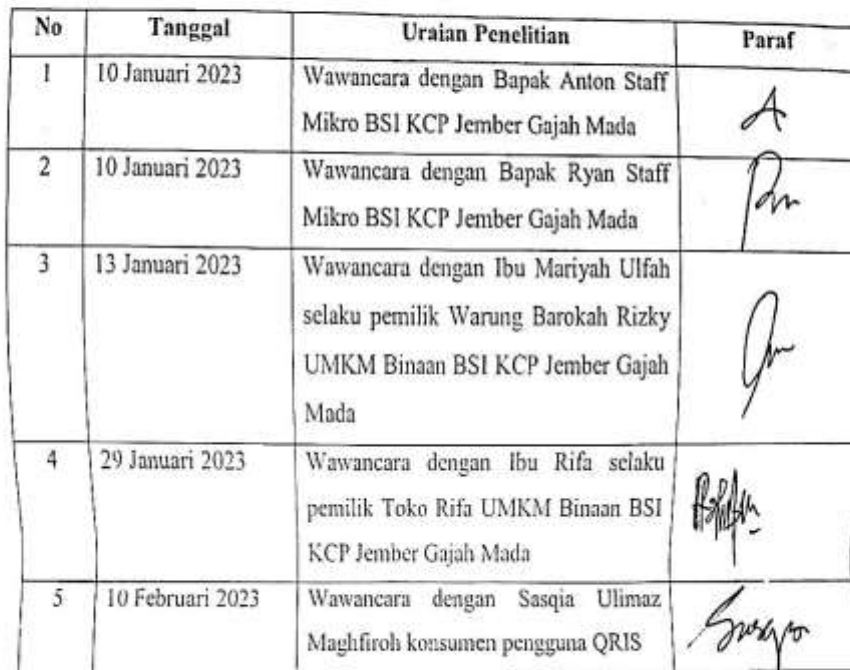 No Tanggal Uraian Penelitian Paraf
1 10 Januari 2023 Wawancara dengan Bapak Anton Staff
Mikro BSI KCP Jember Gajah Mada
2 10 Januari 2023 Wawancara dengan Bapak Ryan Staff
Mikro BSI KCP Jember Gajah Mada
3 13 Januari 2023 Wawancara dengan Ibu Mariyah Ulfah
selaku pemilik Warung Barokah Rizky
UMKM Binaan BSI KCP Jember Gajah
Mada
4 29 Januari 2023 Wawancara dengan Ibu Rifa selaku
pemilik Toko Rifa UMKM Binaan BSI
KCP Jember Gajah Mada
5 10 Februari 2023 Wawancara dengan Sasqia Ulimaz
Maghfiroh konsumen pengguna QRIS